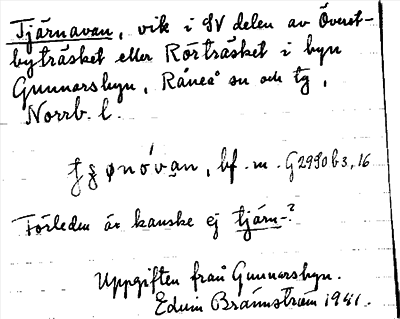 Tjärnavan, vik i SV delen av Överst-
byträsket eller Rörträsket i byn
Gunnarsbyn, Råneå sn och tg,
Norrb. l.
bf. m. G2990b3,16
Förleden är kanske ej tjärn-?
Uppgiften från Gunnarsbyn.
Edvin Brännström 1941.